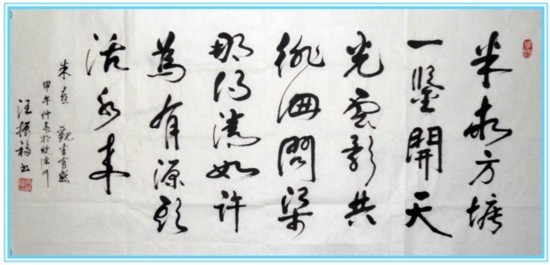 半畝方塘
一鑒開天
光雲影共
徘徊問渠
那得清如許
為有源頭
活水來
朱熹 觀書有感
甲午仲春於
汪振福書